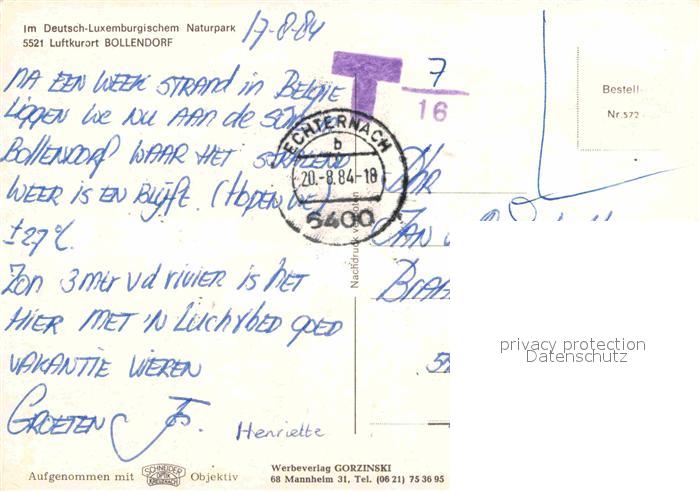 Im Deutsch-Luxemburgischem Naturpark
5521 Luftkurort BOLLENDORF
17-8-84
NA EEN WEEK STRAND in BELGIE
LIGGEN WE NU AAN de
BOLLENDORF WAAR HET STRALEND
WEER IS EN BLIJFT. (HOPEN WE)
± 27°C.
Zon 3 mtr vd rivier is het
HIER MET 'N LUCHTBED GOED
VAKANTIE VIEREN
GROETEN
Henriette
T
7
16
ECHTERNACH
b
20.-8.84-18
6400
Bestell-
Nr. 572
Dhr
JAN
Nachdruck verboten
privacy protection
Datenschutz
Aufgenommen mit SCHNEIDER OPTIK KREUZNACH Objektiv
Werbeverlag GORZINSKI
68 Mannheim 31, Tel. (06 21) 75 36 95